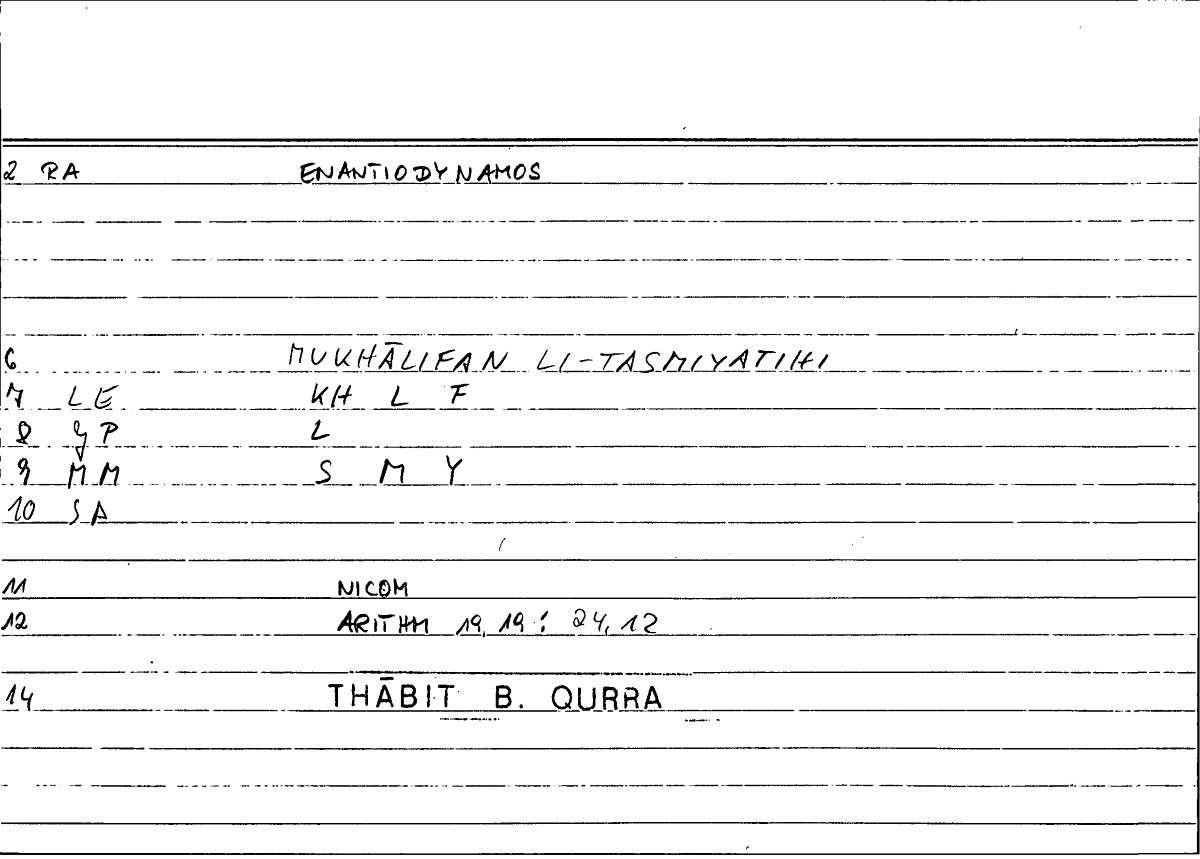 2 RA ENANTIODYNAMOS
6 MUKHĀLIFAN LI-TASMIYATIHI
7 LE KH L F
8 GP L
9 MM S M Y
10 SA
11 NICOM
12 ARITHM 19,19 : 24,12
14 THĀBIT B. QURRA